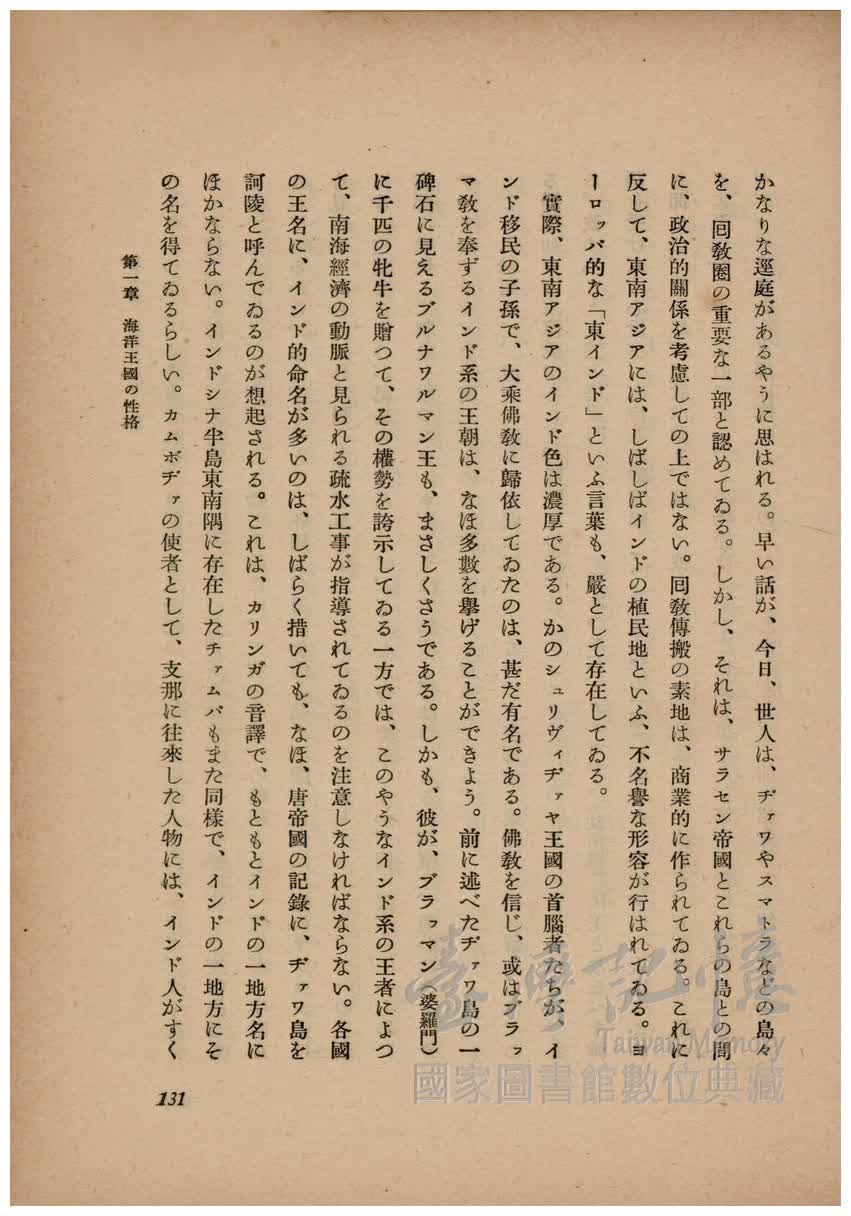 かなりな逕庭があるやうに思はれる。早い話が、今日、世人は、ヂァワやスマトラなどの島々
を、囘敎圈の重要な一部と認めてゐる。しかし、それは、サラセン帝國とこれらの島との間
に、政治的關係を考慮しての上ではない。囘敎傳搬の素地は、商業的に作られてゐる。これに
反して、東南アジアには、しばしばインドの植民地といふ、不名譽な形容が行はれてゐる。ヨ
ーロッパ的な「東インド」といふ言葉も、嚴として存在してゐる。
實際、東南アジアのインド色は濃厚である。かのシュリヴィヂァヤ王國の首腦者たちが、イ
ンド移民の子孫で、大乘佛敎に歸依してゐたのは、甚だ有名である。佛敎を信じ、或はブラッ
マ敎を奉ずるインド系の王朝は、なほ多數を擧げることができよう。前に述べたヂァワ島の一
碑石に見えるプルナワルマン王も、まさしくさうである。しかも、彼が、ブラッマン(婆羅門)
に千匹の牝牛を贈つて、その權勢を誇示してゐる一方では、このやうなインド系の王者によつ
て、南海經濟の動脈と見られる疏水工事が指導されてゐるのを注意しなければならない。各國
の王名に、インド的命名が多いのは、しばらく措いても、なほ、唐帝國の記錄に、ヂァワ島を
訶陵と呼んでゐるのが想起される。これは、カリンガの音譯で、もともとインドの一地方名に
ほかならない。インドシナ半島東南隅に存在したチァムパもまた同樣で、インドの一地方にそ
の名を得てゐるらしい。カムボヂァの使者として、支那に往來した人物には、インド人がすく
第一章 海洋王國の性格
131
臺灣記憶
Taiwan Memory
國家圖書館數位典藏